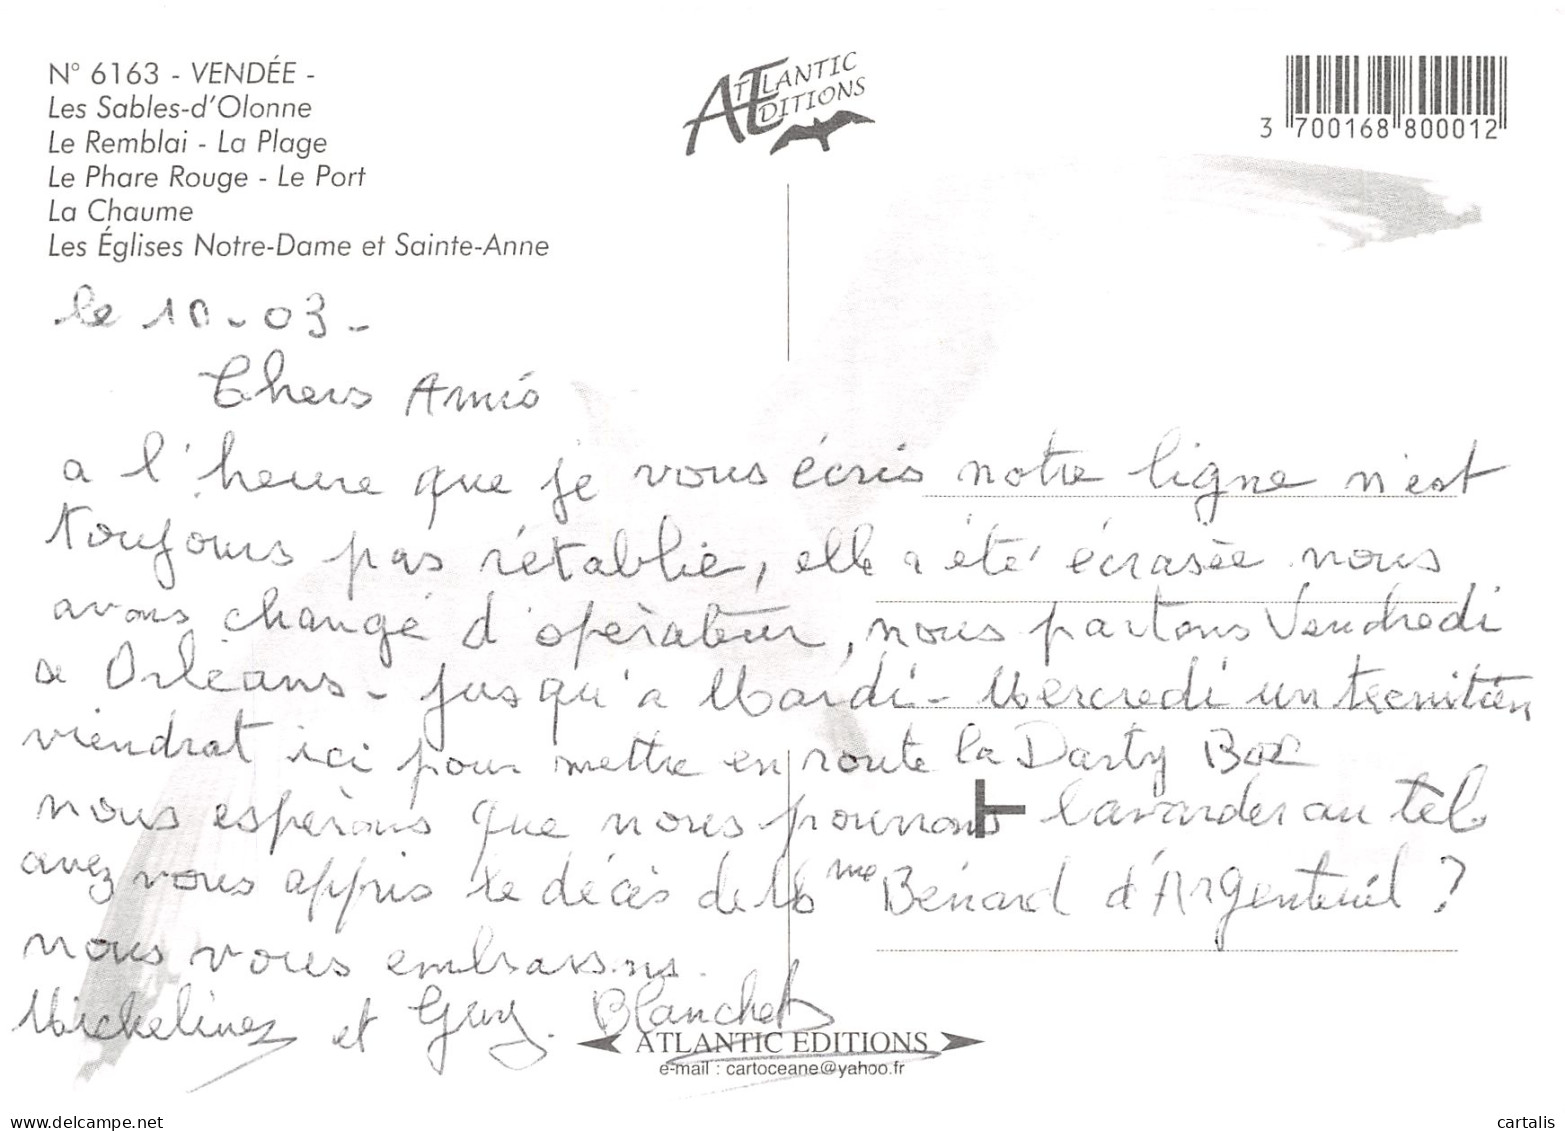 N° 6163 - VENDÉE -
Les Sables-d'Olonne
Le Remblai - La Plage
Le Phare Rouge - Le Port
La Chaume
Les Églises Notre-Dame et Sainte-Anne
ATLANTIC
EDITIONS
3 700168 800012
le 10-03-
Chers Amis
a l'heure que je vous écris notre ligne n'est
toujours pas rétablie, elle a été écrasée nous
avons changé d'opérateur, nous partons Vendredi
a Orléans - jusqu'a Mardi - Mercredi un tecnitien
viendrat ici pour mettre en route la Darty Box
nous espèrons que nous pourrons bavarder au tel
avez vous appris le décés de Mme Bénard d'Argenteuil ?
nous vous embrassons.
Micheline et Guy. Blanchet
ATLANTIC EDITIONS
e-mail : cartoceane@yahoo.fr
www.delcampe.net
cartalis